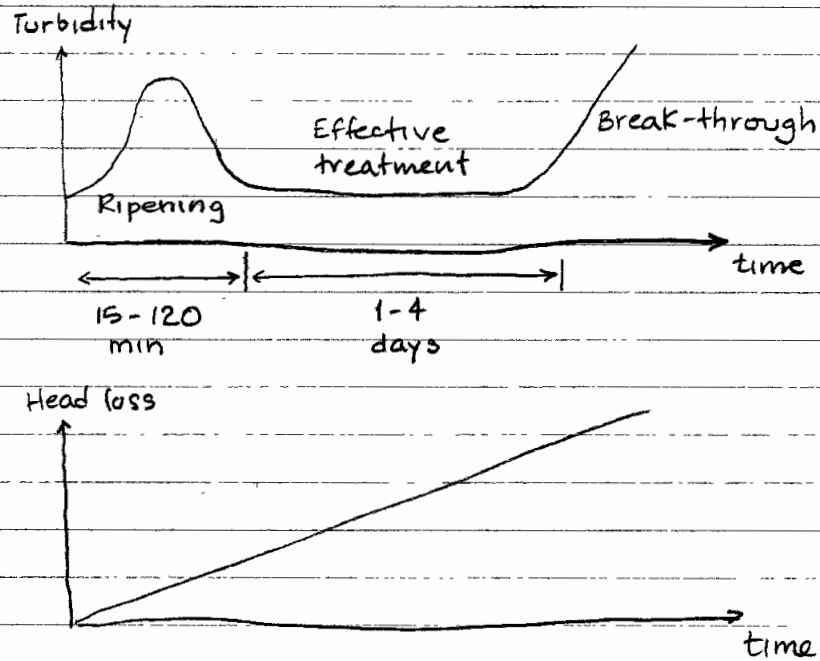 Turbidity
Effective
treatment
Break-through
Ripening
time
15-120
min
1-4
days
Head loss
time